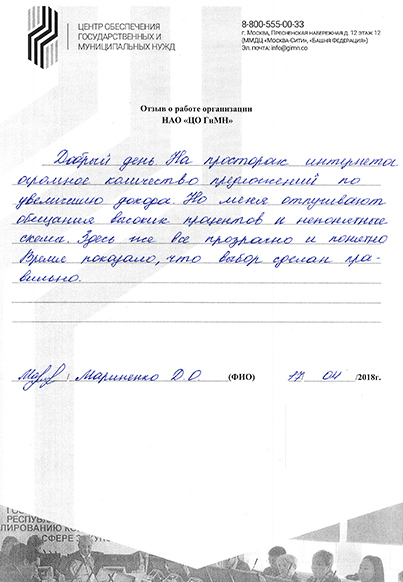 ЦЕНТР ОБЕСПЕЧЕНИЯ
ГОСУДАРСТВЕННЫХ И
МУНИЦИПАЛЬНЫХ НУЖД
8-800-555-00-33
г. Москва, Пресненская набережная д. 12 этаж 12
(ММДЦ «Москва-Сити», «Башня Федерация»)
Эл. почта: info@gimn.co
Отзыв о работе организации
НАО «ЦО ГиМН»
Добрый день На просторах интернета
огромное количество предложений по
увеличению дохода. Но меня отпугивают
обещания высоких процентов и непонятные
схемы. Здесь же все прозрачно и понятно
Время показало, что выбор сделан пра-
вильно.
/ Мариненко Д.О. (ФИО) 17. 04 /2018г.
РЕСПУБЛ
ЛИРОВАНИЮ КО
СФЕРЕ ЗАКУП